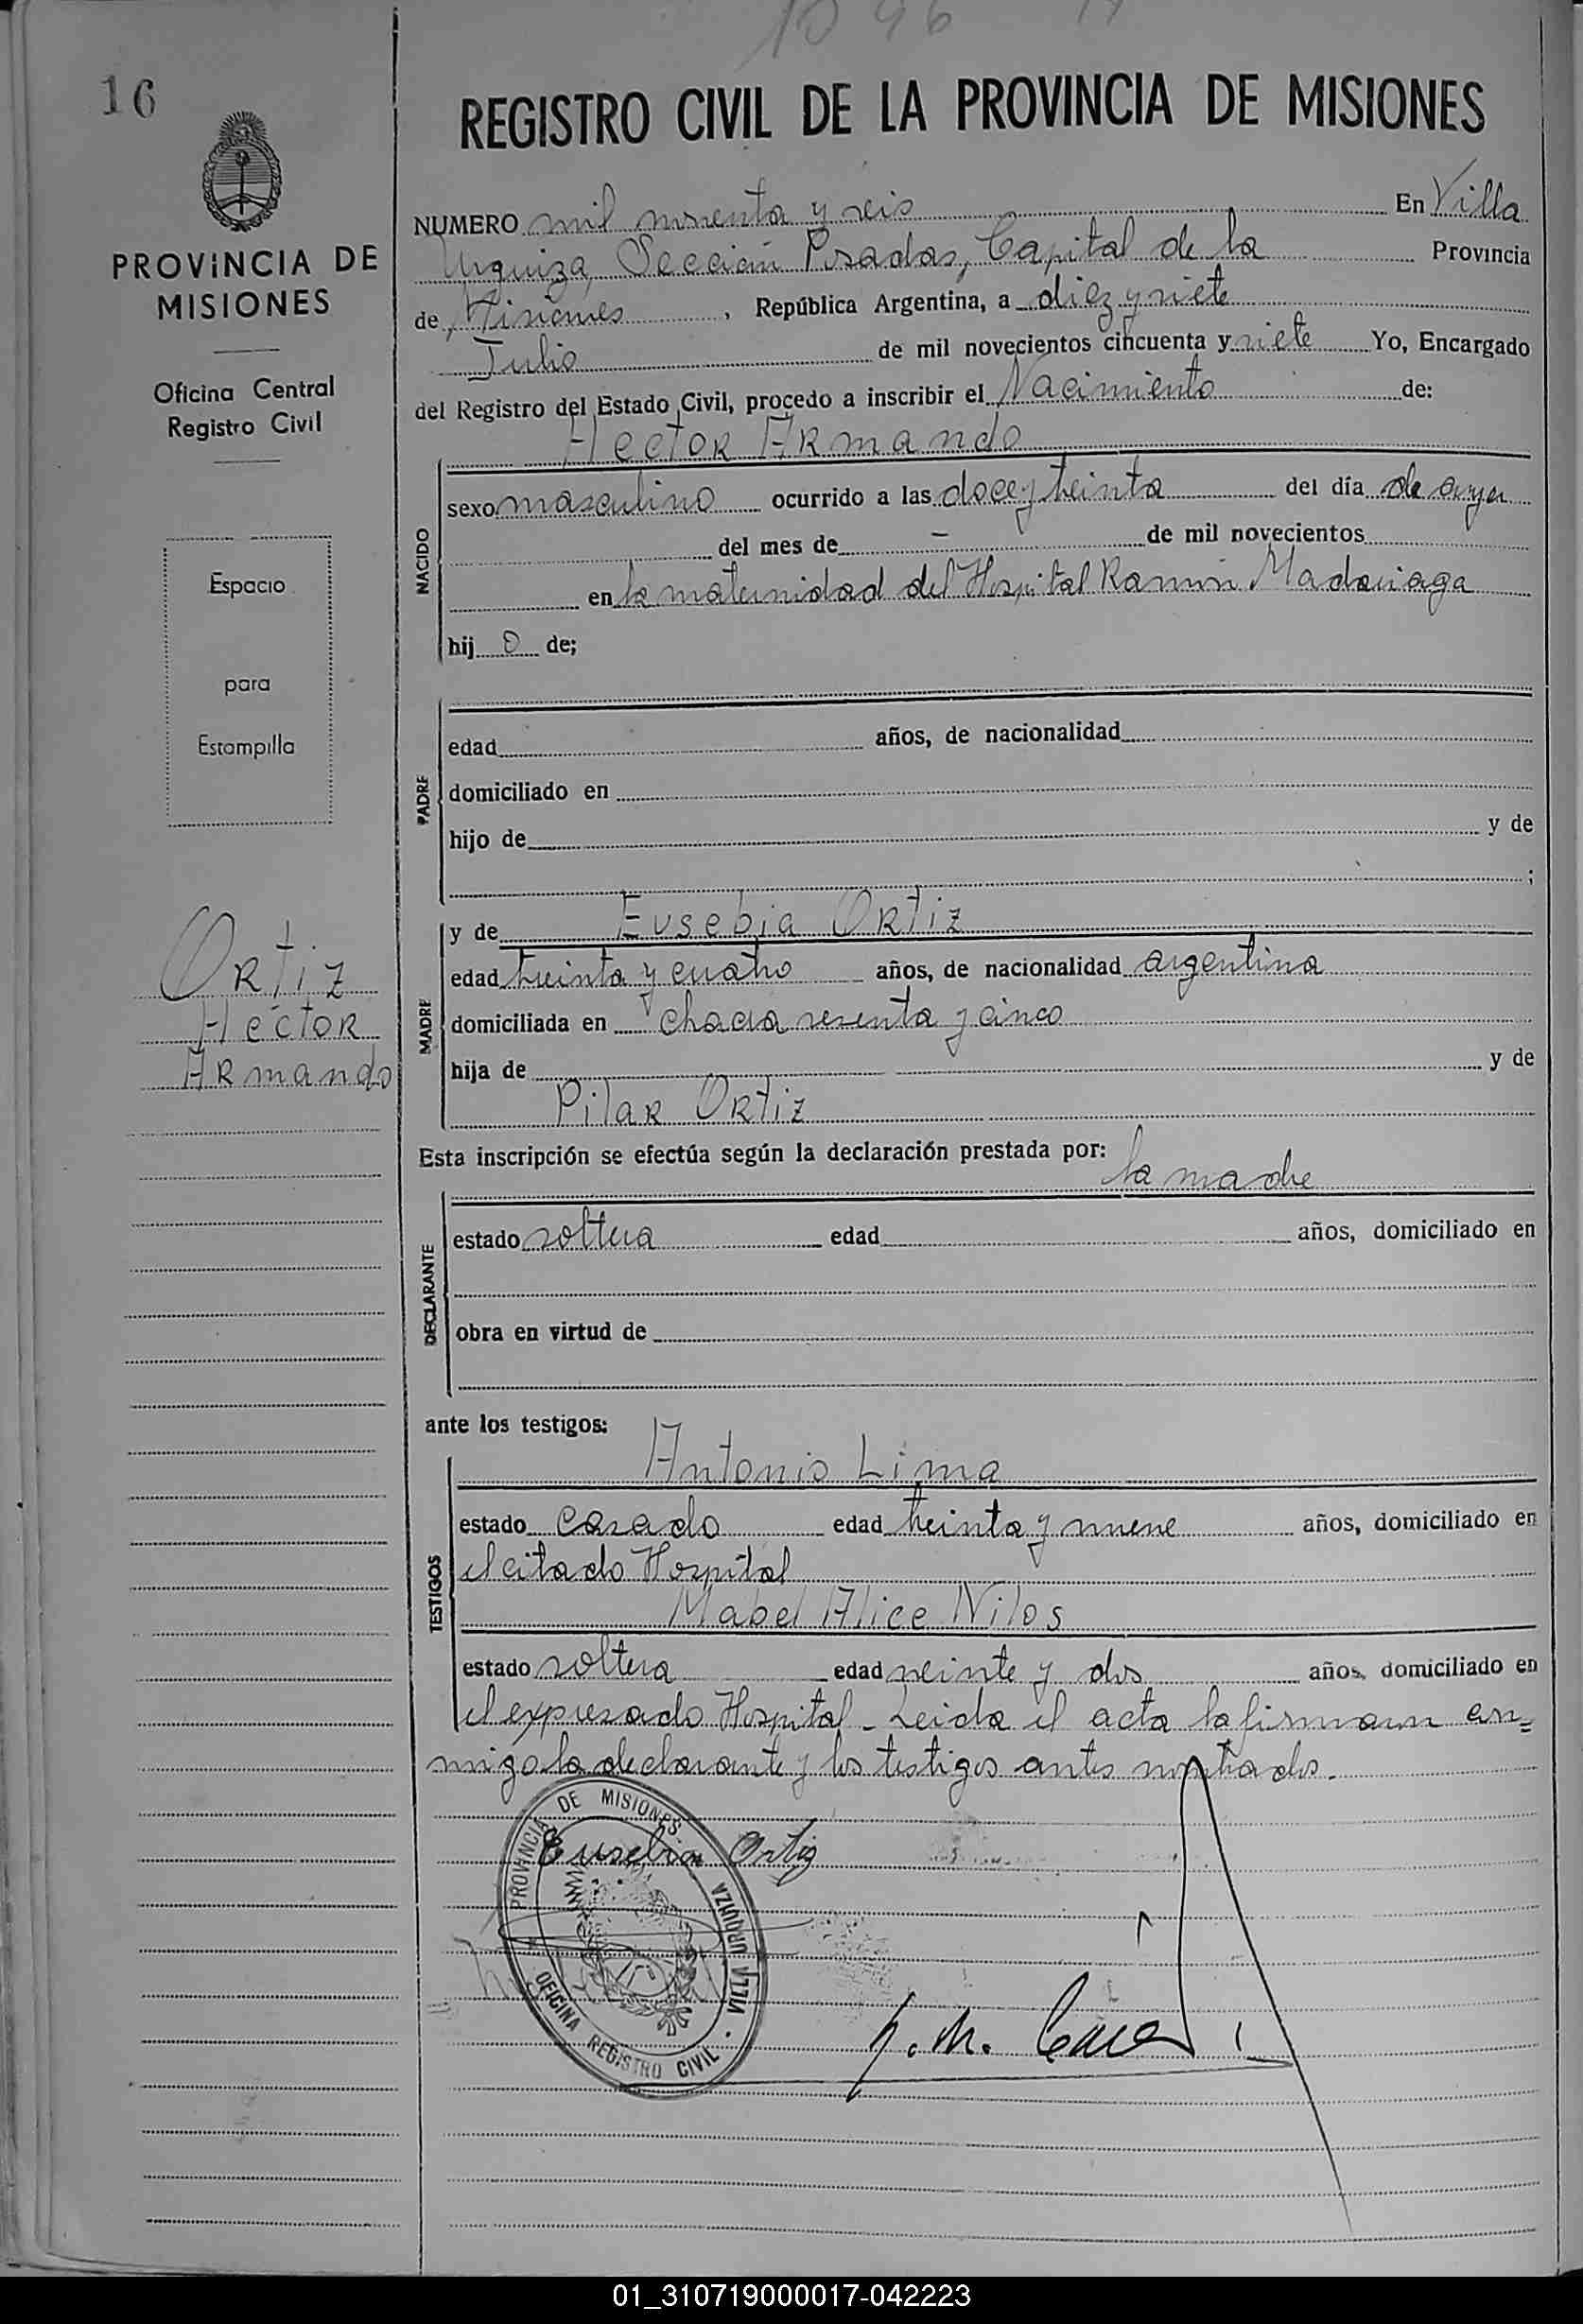 1096
16
REGISTRO CIVIL DE LA PROVINCIA DE MISIONES
PROVINCIA DE
MISIONES
Oficina Central
Registro Civil
Espacio
para
Estampilla
Ortiz
Hector
Armando
NUMERO mil noventa y seis En Villa
Urquiza, Sección Posadas, Capital de la Provincia
de Misiones, República Argentina, a diez y siete
Julio de mil novecientos cincuenta y siete Yo, Encargado
del Registro del Estado Civil, procedo a inscribir el Nacimiento de:
Hector Armando
NACIDO
sexo masculino ocurrido a las doce y treinta del día de ayer
del mes de - de mil novecientos
en la maternidad del Hospital Ramón Madariaga
hij o de;
PADRE
edad años, de nacionalidad
domiciliado en
hijo de y de
;
MADRE
y de Eusebia Ortiz
edad treinta y cuatro años, de nacionalidad argentina
domiciliada en chacra sesenta y cinco
hija de y de
Pilar Ortiz
Esta inscripción se efectúa según la declaración prestada por:
la madre
DECLARANTE
estado soltera edad años, domiciliado en
obra en virtud de
ante los testigos:
Antonio Lima
TESTIGOS
estado casado edad treinta y nueve años, domiciliado en
el citado Hospital
Mabel Alice Nilos
estado soltera edad veinte y dos años, domiciliado en
el expresado Hospital - Leida el acta la firmaron con=
migo la declarante y los testigos antes nombrados.
Eusebia Ortiz
PROVINCIA DE MISIONES
VILLA URQUIZA
OFICINA REGISTRO CIVIL
01_310719000017-042223